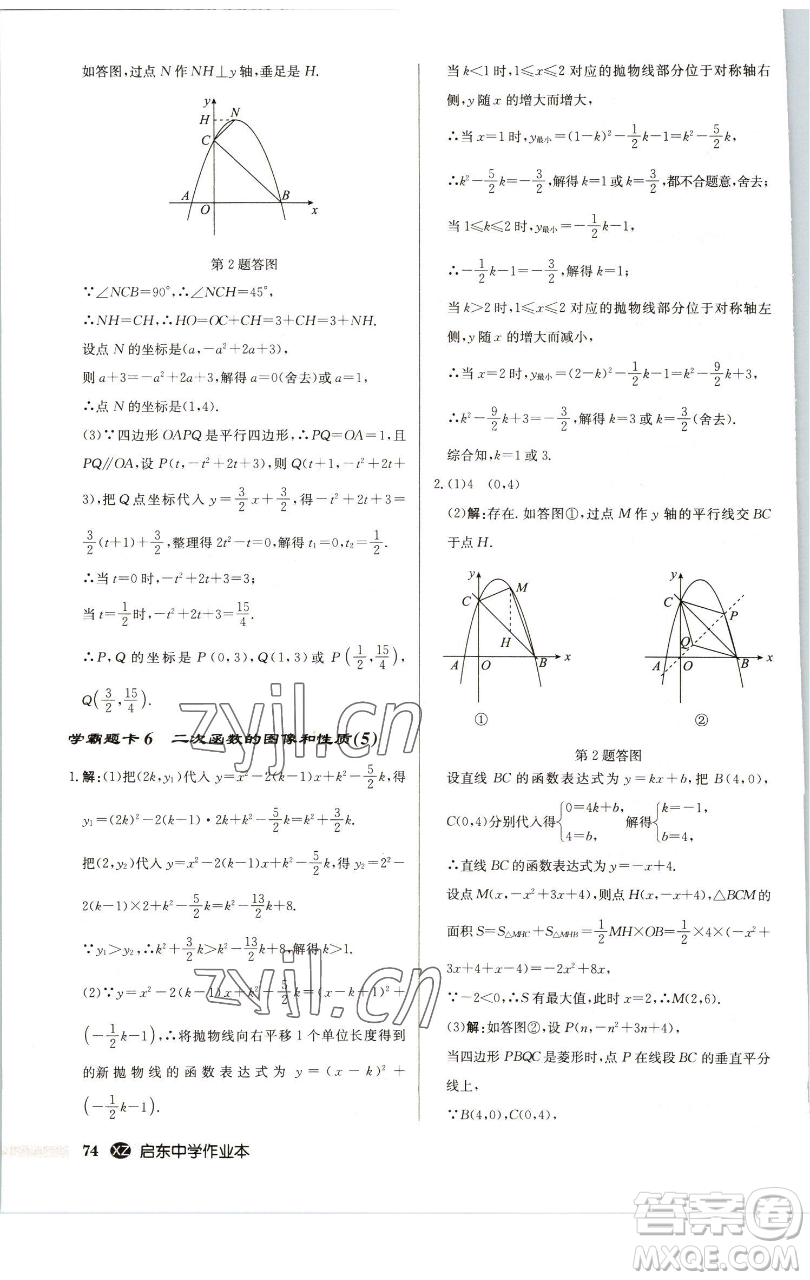 如答图,过点 N 作 NH⊥y 轴,垂足是 H.
y
H
N
C
A
O
B
x
第 2 题答图
∵∠NCB=90°,∴∠NCH=45°,
∴NH=CH,∴HO=OC+CH=3+CH=3+NH.
设点 N 的坐标是(a,-a²+2a+3),
则 a+3=-a²+2a+3,解得 a=0(舍去)或 a=1,
∴点 N 的坐标是(1,4).
(3)∵四边形 OAPQ 是平行四边形,∴PQ=OA=1,且
PQ∥OA,设 P(t,-t²+2t+3),则 Q(t+1,-t²+2t+
3),把 Q 点坐标代入 y=3/2x+3/2,得-t²+2t+3=
3/2(t+1)+3/2,整理得 2t²-t=0,解得 t₁=0,t₂=1/2.
∴当 t=0 时,-t²+2t+3=3,
当 t=1/2 时,-t²+2t+3=15/4.
∴P,Q 的坐标是 P(0,3),Q(1,3)或 P(1/2,15/4),
Q(3/2,15/4).
学霸题卡 6 二次函数的图像和性质(5)
1.解:(1)把(2k,y₁)代入 y=x²-2(k-1)x+k²-5/2k,得
y₁=(2k)²-2(k-1)·2k+k²-5/2k=k²+3/2k.
把(2,y₂)代入 y=x²-2(k-1)x+k²-5/2k,得 y₂=2²-
2(k-1)×2+k²-5/2k=k²-13/2k+8.
∵y₁>y₂,∴k²+3/2k>k²-13/2k+8,解得 k>1.
(2)∵y=x²-2(k-1)x+k²-5/2k=(x-k+1)²+
(-1/2k-1),∴将抛物线向右平移 1 个单位长度得到
的新抛物线的函数表达式为 y=(x-k)²+
(-1/2k-1).
74 XZ 启东中学作业本
当 k<1 时,1≤x≤2 对应的抛物线部分位于对称轴右
侧,y 随 x 的增大而增大,
∴当 x=1 时,y最小=(1-k)²-1/2k-1=k²-5/2k,
∴k²-5/2k=-3/2,解得 k=1或 k=3/2,都不合题意,舍去;
当 1≤k≤2 时,y最小=-1/2k-1,
∴-1/2k-1=-3/2,解得 k=1;
当 k>2 时,1≤x≤2 对应的抛物线部分位于对称轴左
侧,y 随 x 的增大而减小,
∴当 x=2 时,y最小=(2-k)²-1/2k-1=k²-9/2k+3,
∴k²-9/2k+3=-3/2,解得 k=3 或 k=3/2(舍去).
综合知,k=1 或 3.
2.(1)4 (0,4)
(2)解:存在.如答图①,过点 M 作 y 轴的平行线交 BC
于点 H.
y
C
M
H
A
O
B
x
①
y
C
P
Q
A
O
B
x
②
第 2 题答图
设直线 BC 的函数表达式为 y=kx+b,把 B(4,0),
C(0,4)分别代入得{0=4k+b, 4=b, 解得{k=-1, b=4,
∴直线 BC 的函数表达式为 y=-x+4.
设点 M(x,-x²+3x+4),则点 H(x,-x+4),△BCM的
面积 S=S△MHC+S△MHB=1/2MH×OB=1/2×4×(-x²+
3x+4+x-4)=-2x²+8x,
∵-2<0,∴S 有最大值,此时 x=2,∴M(2,6).
(3)解:如答图②,设 P(n,-n²+3n+4),
当四边形 PBQC 是菱形时,点 P 在线段 BC 的垂直平分
线上,
∵B(4,0),C(0,4),
zyjl.cn
zyjl.cn
作业精灵
答案圈
MXQE.COM